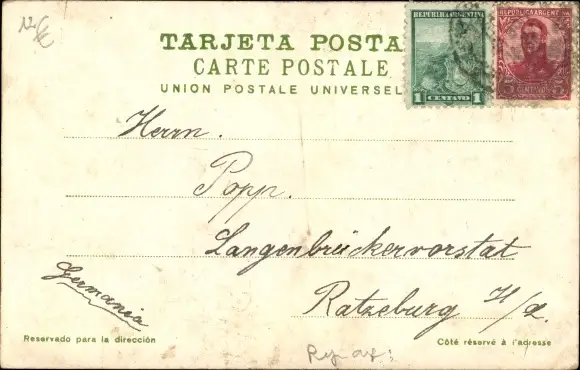 12 €
TARJETA POSTA
CARTE POSTALE
UNION POSTALE UNIVERSEL
REPUBLICA ARGENTINA
1 CENTAVO 1
REPUBLICA ARGENTINA
5 CENTAVOS 5
Herrn.
Popp.
Langenbrückervorstat
Germania
Ratzeburg H/a.
Reservado para la dirección
Côté réservé à l'adresse